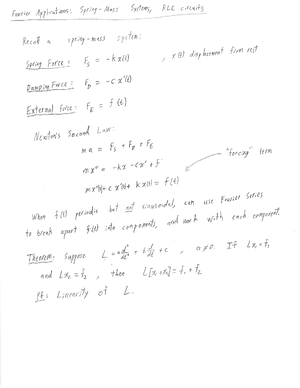 Fourier Applications: Spring-Mass Systems, RLC circuits
Recall a spring-mass system:
Spring Force: F_S = -kx(t) , x(t) displacement from rest
Damping Force: F_D = -cx'(t)
External Force: F_E = f(t)
Newton's Second Law:
ma = F_S + F_D + F_E
mx'' = -kx - cx' + f
mx''(t) + cx'(t) + kx(t) = f(t)
"forcing" term
When f(t) periodic but not sinusoidal, can use Fourier Series
to break apart f(t) into components, and work with each component.
Theorem: Suppose L = a d²/dt² + b d/dt + c, a≠0. If Lx₁ = f₁
and Lx₂ = f₂, then L[x₁+x₂] = f₁ + f₂
Pf: Linearity of L.